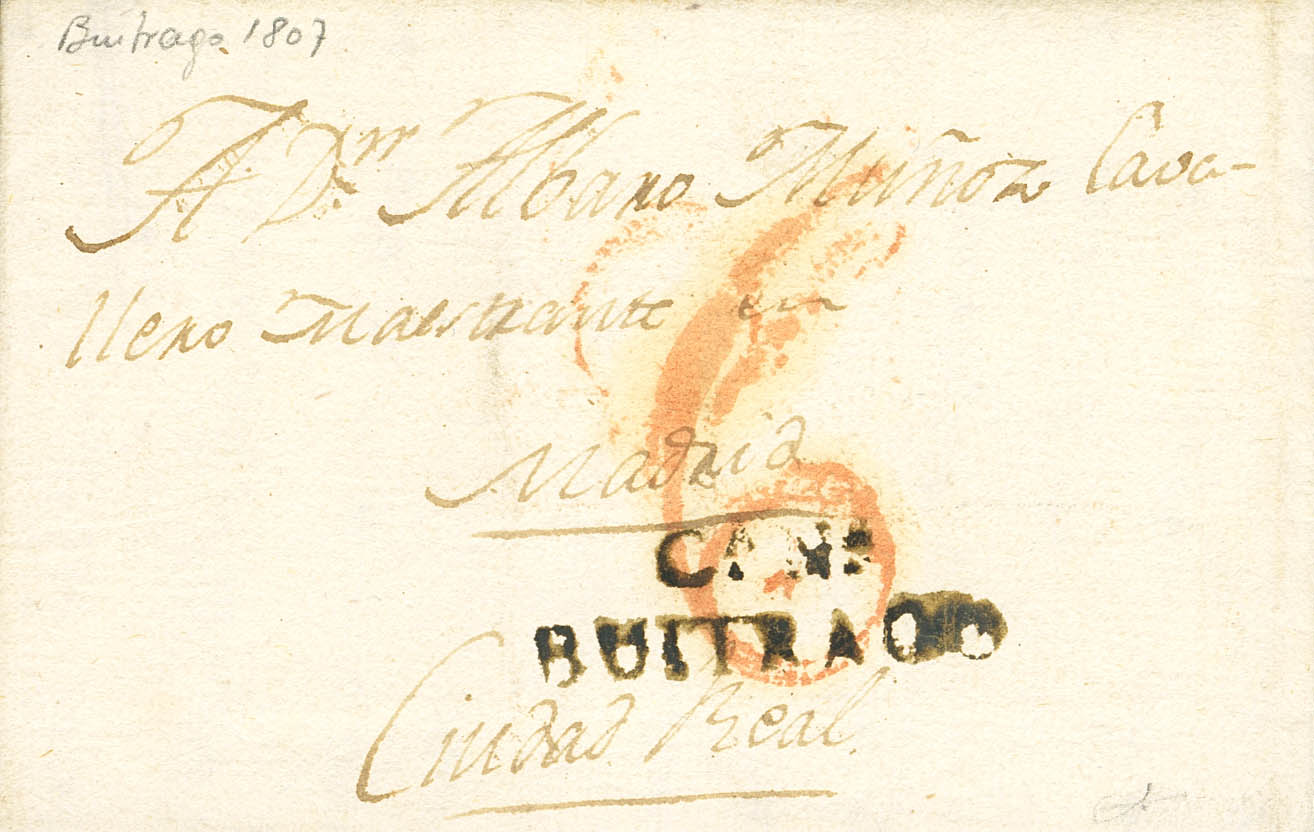 Buitrago 1807
A Dn Albaro Muñoz Cava-
llero Maestrante en
Madrid
CANa
BUITRAGO
Ciudad Real.